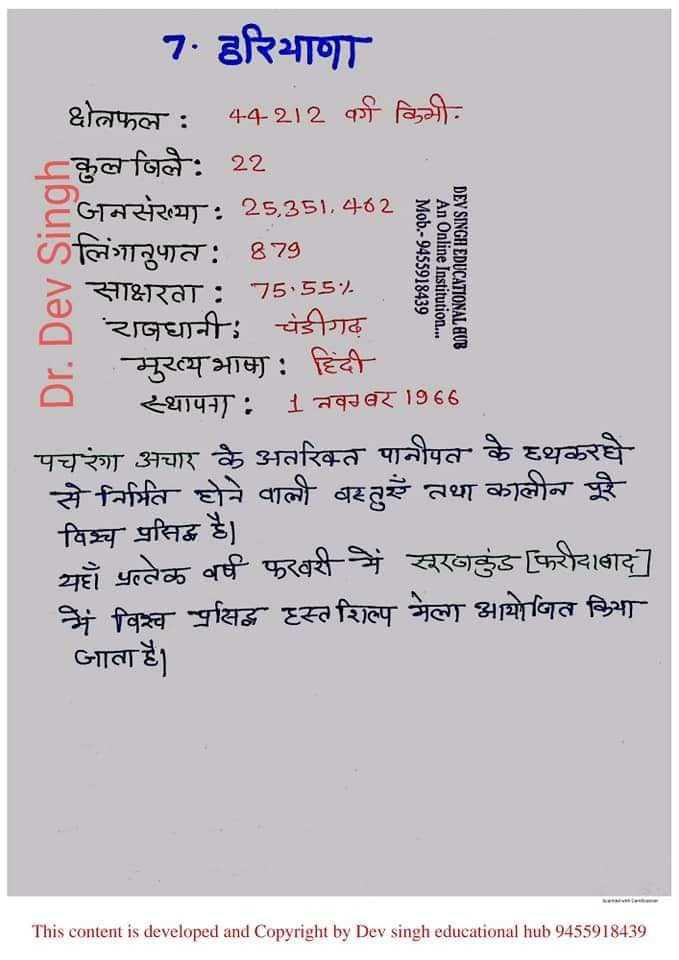 7. हरियाणा
क्षेत्रफल : 44212 वर्ग किमी.
कुल जिले : 22
जनसंख्या : 25,351,462
लिंगानुपात : 879
साक्षरता : 75.55%
राजधानी : चंडीगढ़
मुख्य भाषा : हिंदी
स्थापना : 1 नवम्बर 1966
Dr. Dev Singh
DEV SINGH EDUCATIONAL HUB
An Online Instituion...
Mob.- 9455918439
पचरंगा अचार के अतरिक्त पानीपत के हथकरघे
से निर्मित होने वाली वस्तुएँ तथा कालीन पूरे
विश्व प्रसिद्ध है|
यहाँ प्रत्येक वर्ष फरवरी में सूरजकुंड [फरीदाबाद]
में विश्व प्रसिद्ध हस्त शिल्प मेला आयोजित किया
जाता है|
Scanned with CamScanner
This content is developed and Copyright by Dev singh educational hub 9455918439